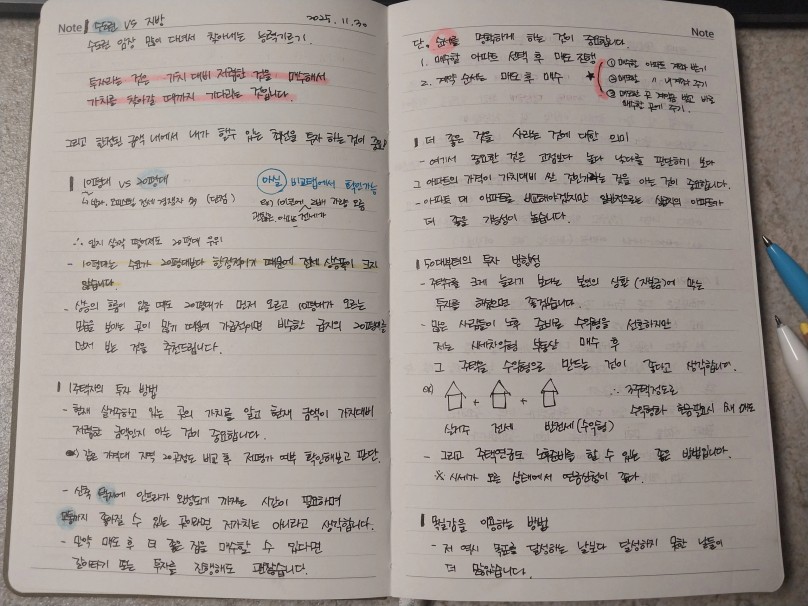 Note
수도권 vs 지방
2025.11.30
수도권 임장 많이 다녀서 찾아내는 능력기르기.
투자라는 것은 가치 대비 저렴한 것을 매수해서
가치를 찾아갈 때까지 기다리는 것입니다.
그리고 한정된 금액 내에서 내가 할수 있는 최선을 투자 하는 것이 중요!
10평대 vs 20평대
아실 비교탭에서 확인가능
오피스텔 전세 경쟁자 (단점)
ex) 10년에
∴ 입지 살짝 떨어져도 20평대 우위
- 10평대는 수요가 20평대보다 한정적이기 때문에 전세 상승폭이 크지
않습니다.
- 상승의 흐름이 있을 때도 20평대가 먼저 오르고 10평대가 오르는
모습을 보이는 곳이 많기 때문에 가급적이면 비슷한 급지의 20평대를
먼저 보는 것을 추천드립니다.
1주택자의 투자 방법
- 현재 실거주하고 있는 곳의 가치를 알고 현재 금액이 가치대비
저렴한 금액인지 아는 것이 중요합니다.
ex) 같은 가격대 지역 20곳정도 비교 후 저평가 여부 확인해보고 판단.
- 신축 택지에 인프라가 완성되기 까지는 시간이 필요하며
교통까지 좋아질 수 있는 곳이라면 저가치는 아니라고 생각합니다.
- 만약 매도 후 더 좋은 집을 매수할 수 있다면
갈아타기 또는 투자를 진행해도 괜찮습니다.
Note
단, 순서를 명확하게 하는 것이 중요합니다.
1. 매수할 아파트 선택 후 매도 진행
2. 계약 순서는 매도 후 매수
① 매수할 아파트 계좌 받기
② 매도할 〃 내 계좌 주기
③ 매도한 곳 계약금 받고 바로
매수할 곳에 주기.
더 좋은 것을 사라는 것에 대한 의미
- 여기서 중요한 것은 고점보다 높다 낮다를 판단하기 보다
그 아파트의 가격이 가치대비 싼 것인가라는 것을 아는 것이 중요합니다.
- 아파트 대 아파트로 비교해야겠지만 일반적으로는 상급지의 아파트가
더 좋을 가능성이 높습니다.
50대부터의 투자 방향성
- 주택수를 크게 늘리기 보다는 본인의 상황 (자금)에 맞는
투자를 하셨으면 좋겠습니다.
- 많은 사람들이 노후 준비로 수익형을 선호하지만
저는 시세차익형 부동산 매수 후
그 주택을 수익형으로 만드는 것이 좋다고 생각합니다.
ex) + +
∴ 3주택정도로
수익형과 현금필요시 1채 매도
실거주 전세 반전세(수익형)
- 그리고 주택연금도 노후준비를 할 수 있는 좋은 방법입니다.
※ 시세가 오른 상태에서 연금신청이 좋다.
독립감을 이용하는 방법
- 저 역시 목표를 달성하는 날보다 달성하지 못한 날들이
더 많았습니다.